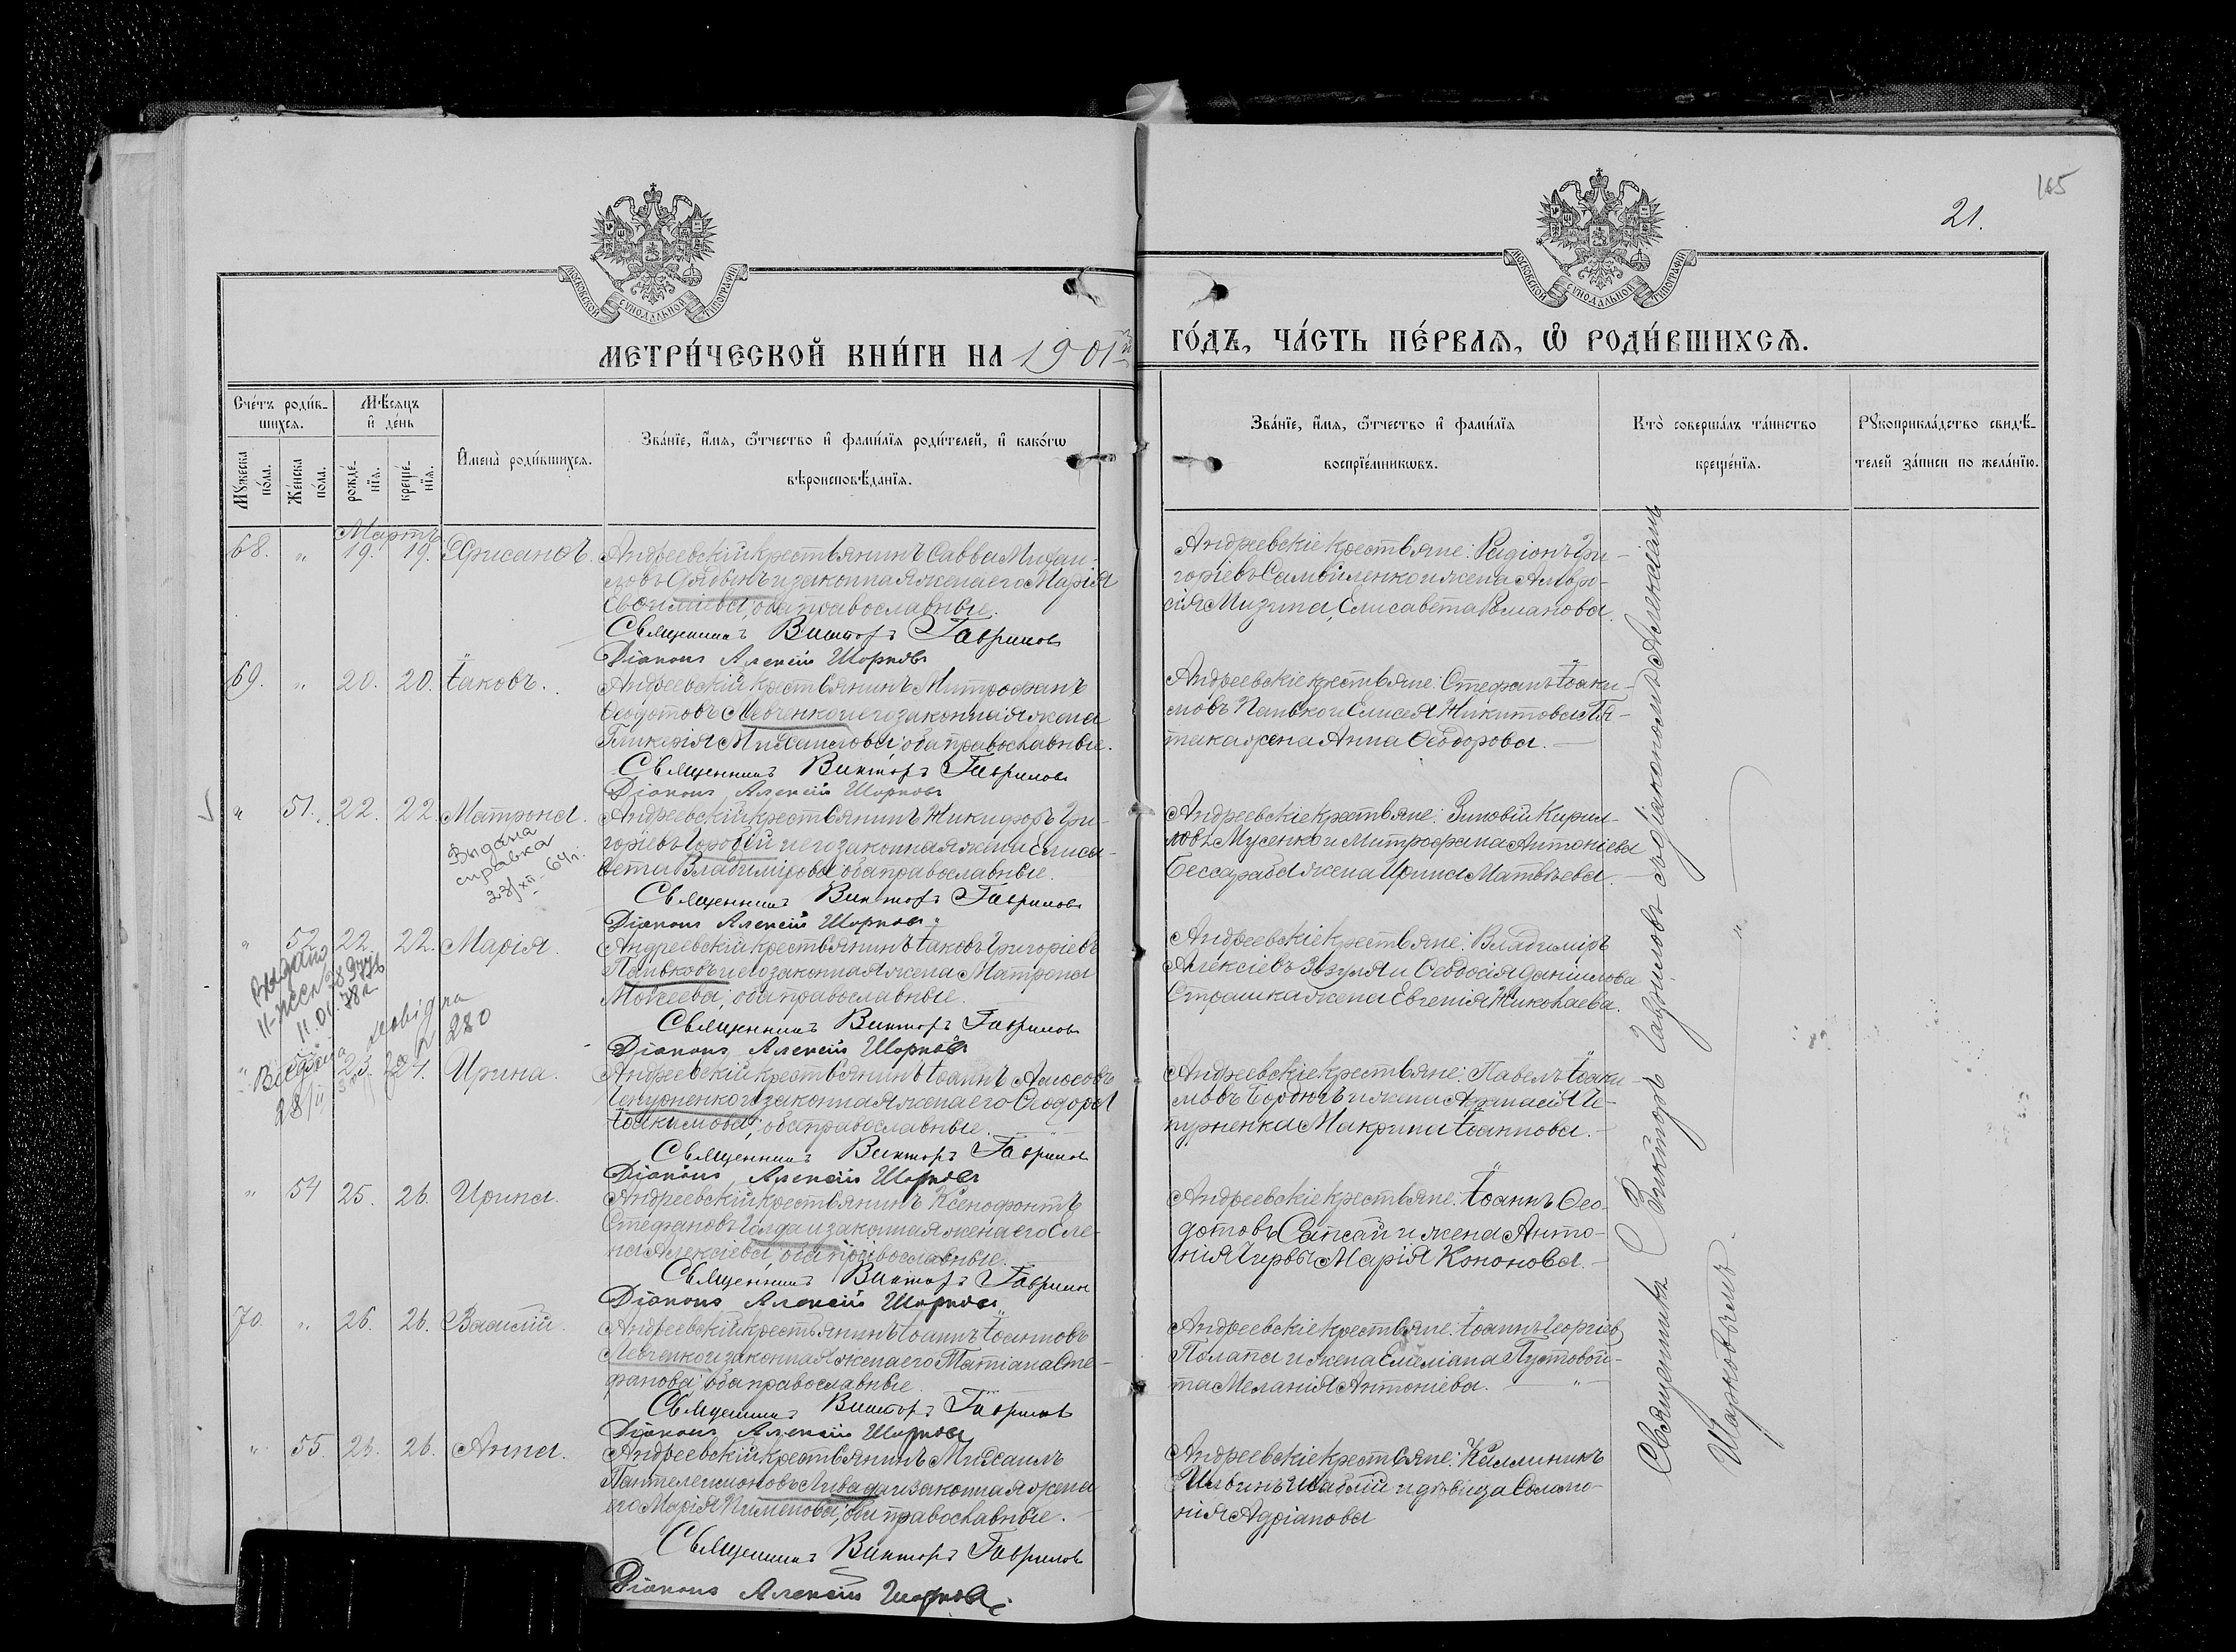 165
21.
МОСКОВСКОЙ СУНОДАЛЬНОЙ ТИПОГРАФІИ
МОСКОВСКОЙ СУНОДАЛЬНОЙ ТИПОГРАФІИ
МЕТРИ́ЧЕСКОЙ КНИ́ГИ НА 1901й
ГО́ДЪ, ЧА́СТЬ ПЕ́РВАѦ, Ѽ РОДИ́ВШИХСѦ.
Сче́тъ роди́в-
шихсѧ.
Мꙋ́жеска по́ла.
Же́нска по́ла.
Мѣ́сѧцъ
и҆ де́нь
рожде́-
нїѧ.
креще́-
нїѧ.
И҆мена̀ роди́вшихсѧ.
Зва́нїе, и҆́мѧ, ѻ҆́тчество и҆ фами́лїѧ роди́телей, и҆ како́гѡ
вѣроисповѣ́данїѧ.
Зва́нїе, и҆́мѧ, ѻ҆́тчество и҆ фами́лїѧ
воспрїе́мникѡвъ.
Кто̀ соверша́лъ та́инство
креще́нїѧ.
Рꙋкоприкла́дство свидѣ́-
телей за́писи по жела́нїю.
Мартъ
68. " 19. 19. Хрисанѳъ.
Андреевскій крестьянинъ Савва Михаи-
ловъ и законная жена его Марія
Евѳиміева, оба православные.
Священникъ Викторъ Гавриловъ
Діаконъ Алексій Шарковъ
Андреевскіе крестьяне: Радіонъ Гри-
горіевъ Самойленко и жена Амвро-
сія Мизина, Елисавета Романова.
69. " 20. 20. Іаковъ.
Андреевскій крестьянинъ Митрофанъ
Ѳеодотовъ Левченко и его законная жена
Гликерія Михаилова, оба православные.
Священникъ Викторъ Гавриловъ
Діаконъ Алексій Шарковъ
Андреевскіе крестьяне: Стефанъ Іоаки-
мовъ Панько и Елисея Никитова
жена Анна Ѳеодорова.
" 51. 22. 22. Матрона.
Выдана
справка
23/XII-64г.
Андреевскій крестьянинъ Никифоръ Гри-
горіевъ Горобій и его законная жена Елиса-
вета Владимірова, оба православные.
Священникъ Викторъ Гавриловъ
Діаконъ Алексій Шарковъ
Андреевскіе крестьяне: Зиновій Кирил-
ловъ Мусенко и Митрофана Антоніева
Бессараба жена Ирина Матвѣева.
" 52. 22. 22. Марія.
Выдано
11.01.78г
Андреевскій крестьянинъ Іаковъ Григоріевъ
Паньковъ и его законная жена Матрона
Моисеева, оба православные.
Священникъ Викторъ Гавриловъ
Діаконъ Алексій Шарковъ
Андреевскіе крестьяне: Владиміръ
Алексіевъ Зозуля и Ѳеодосія Даніилова
Страшка жена Евгенія Николаева.
" 23. 24. Ирина.
довідка
280
Андреевскій крестьянинъ Іоаннъ
Чепурненко и законная жена его Ѳеодора
Іоакимова, оба православные.
Священникъ Викторъ Гавриловъ
Діаконъ Алексій Шарковъ
Андреевскіе крестьяне: Павелъ Іоаки-
мовъ Бордюгъ и жена Аѳанасія Че-
пурненка Макрина Іоаннова.
" 54 25. 26. Ирина.
Андреевскій крестьянинъ Ксенофонтъ
Стефановъ и законная жена его Еле-
на Алексіева, оба православные.
Священникъ Викторъ Гавриловъ
Діаконъ Алексій Шарковъ
Андреевскіе крестьяне: Іоаннъ Ѳео-
дотовъ Сапсай и жена Анто-
нія Чирвы Марія Кононова.
70. " 26. 26. Василій.
Андреевскій крестьянинъ Іоаннъ Іоанновъ
Левченко и законная жена его Татіана Сте-
фанова, оба православные.
Священникъ Викторъ Гавриловъ
Діаконъ Алексій Шарковъ
Андреевскіе крестьяне: Іоаннъ Георгіевъ
и жена Емиліана Пустовой-
та Меланія Антоніева. "
" 55. 26. 26. Анна.
Андреевскій крестьянинъ Михаилъ
Пантелеимоновъ Ливада и законная жена
его Марія Пименова, оба православные.
Священникъ Викторъ Гавриловъ
Діаконъ Алексій Шарковъ
Андреевскіе крестьяне: Каллиникъ
и дѣвица Соломо-
нія Адріанова
Священникъ Викторъ Гавриловъ съ діакономъ Алексіемъ
Шарковымъ.